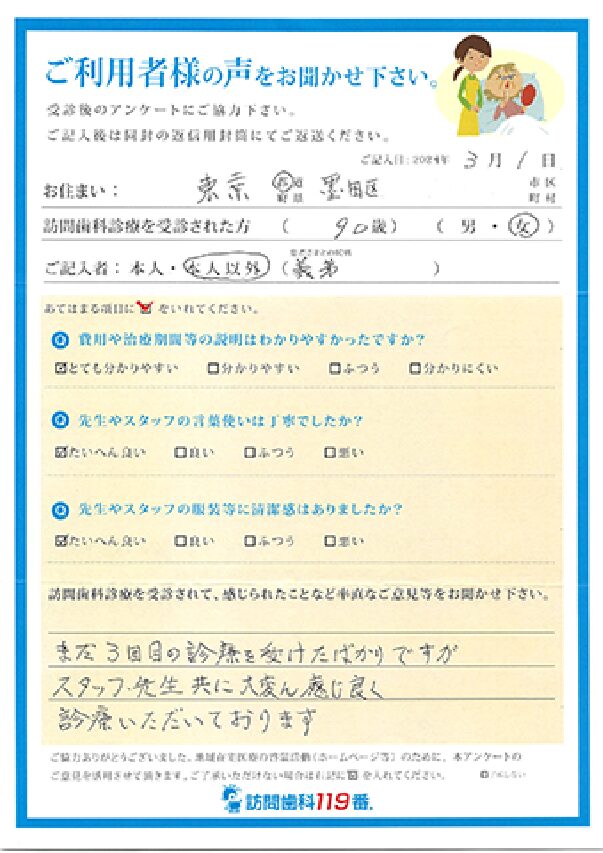 ご利用者様の声をお聞かせ下さい。
受診後のアンケートにご協力下さい。
ご記入後は同封の返信用封筒にてご返送ください。
ご記入日：2024年 3月 1日
お住まい： 東京 都道府県 墨田区 市区町村
訪問歯科診療を受診された方 （ 90歳）（ 男・女 ）
ご記入者：本人・本人以外（義弟 ）
あてはまる項目に☑をいれてください。
Q 費用や治療期間等の説明はわかりやすかったですか？
☑とても分かりやすい □分かりやすい □ふつう □分かりにくい
Q 先生やスタッフの言葉使いは丁寧でしたか？
☑たいへん良い □良い □ふつう □悪い
Q 先生やスタッフの服装等に清潔感はありましたか？
☑たいへん良い □良い □ふつう □悪い
訪問歯科診療を受診されて、感じられたことなど率直なご意見等をお聞かせ下さい。
まだ3回目の診療を受けたばかりですが
スタッフ・先生 共に大変ん感じ良く
診療いただいております
ご協力ありがとうございました。地域在宅医療の啓蒙活動（ホームページ等）のために、本アンケートの
ご意見を活用させて頂きます。ご了承いただけない場合は右記に☑を入れてください。
訪問歯科119番.